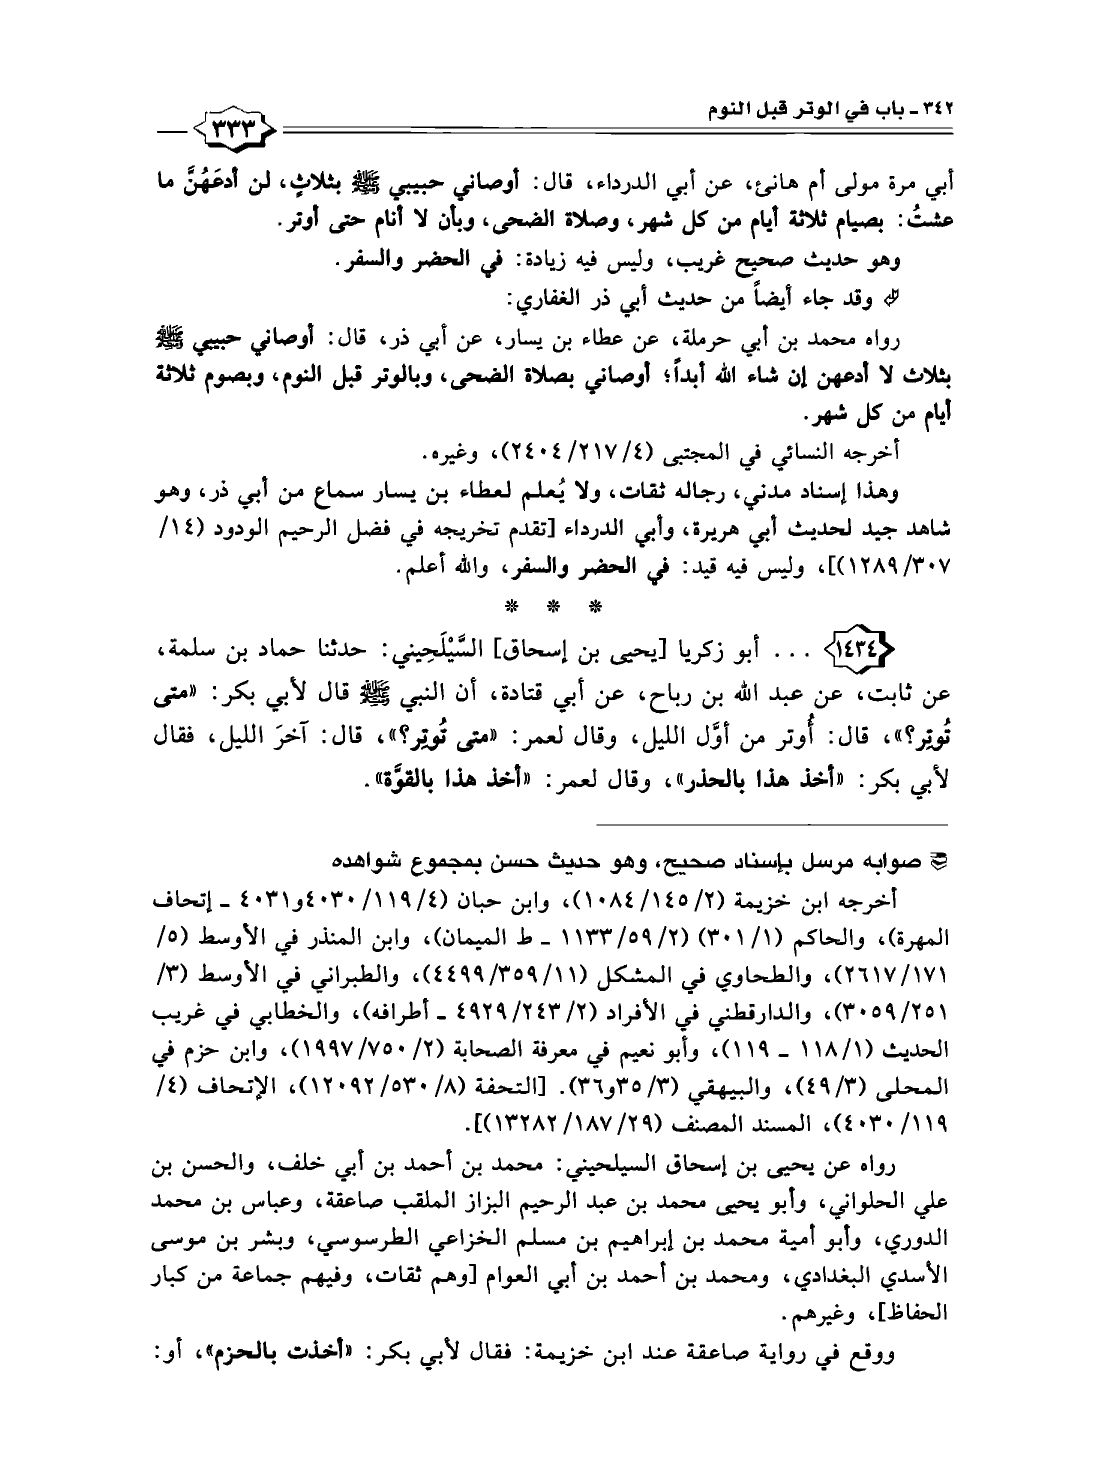 ٣٤٢ - باب في الوتر قبل النوم
٣٣٣
أبي مرة مولى أم هانئ، عن أبي الدرداء، قال: أوصاني حبيبي ﷺ بثلاثٍ، لن أدعَهُنَّ ما
عشتُ: بصيام ثلاثة أيام من كل شهر، وصلاة الضحى، وبأن لا أنام حتى أوتر.
وهو حديث صحيح غريب، وليس فيه زيادة: في الحضر والسفر.
وقد جاء أيضاً من حديث أبي ذر الغفاري:
رواه محمد بن أبي حرملة، عن عطاء بن يسار، عن أبي ذر، قال: أوصاني حبيبي ﷺ
بثلاث لا أدعهن إن شاء الله أبداً؛ أوصاني بصلاة الضحى، وبالوتر قبل النوم، وبصوم ثلاثة
أيام من كل شهر.
أخرجه النسائي في المجتبى (٤/ ٢١٧/ ٢٤٠٤)، وغيره.
وهذا إسناد مدني، رجاله ثقات، ولا يُعلم لعطاء بن يسار سماع من أبي ذر، وهو
شاهد جيد لحديث أبي هريرة، وأبي الدرداء [تقدم تخريجه في فضل الرحيم الودود (١٤/
٣٠٧/ ١٢٨٩)]، وليس فيه قيد: في الحضر والسفر، والله أعلم.
* * *
١٤٣٤ ... أبو زكريا [يحيى بن إسحاق] السَّيْلَحِيني: حدثنا حماد بن سلمة،
عن ثابت، عن عبد الله بن رباح، عن أبي قتادة، أن النبي ﷺ قال لأبي بكر: «متى
تُوتِر؟»، قال: أُوتر من أوَّل الليل، وقال لعمر: «متى تُوتِر؟»، قال: آخرَ الليل، فقال
لأبي بكر: «أخذ هذا بالحذر»، وقال لعمر: «أخذ هذا بالقوَّة».
صوابه مرسل بإسناد صحيح، وهو حديث حسن بمجموع شواهده
أخرجه ابن خزيمة (٢/ ١٤٥/ ١٠٨٤)، وابن حبان (٤/ ١١٩/ ٤٠٣٠ و٤٠٣١ - إتحاف
المهرة)، والحاكم (١/ ٣٠١) (٢/ ٥٩/ ١١٣٣ - ط الميمان)، وابن المنذر في الأوسط (٥/
١٧١/ ٢٦١٧)، والطحاوي في المشكل (١١/ ٣٥٩/ ٤٤٩٩)، والطبراني في الأوسط (٣/
٢٥١/ ٣٠٥٩)، والدارقطني في الأفراد (٢/ ٢٤٣/ ٤٩٢٩ - أطرافه)، والخطابي في غريب
الحديث (١/ ١١٨ - ١١٩)، وأبو نعيم في معرفة الصحابة (٢/ ٧٥٠/ ١٩٩٧)، وابن حزم في
المحلى (٣/ ٤٩)، والبيهقي (٣/ ٣٥ و٣٦). [التحفة (٨/ ٥٣٠/ ١٢٠٩٢)، الإتحاف (٤/
١١٩/ ٤٠٣٠)، المسند المصنف (٢٩/ ١٨٧/ ١٣٢٨٢)].
رواه عن يحيى بن إسحاق السيلحيني: محمد بن أحمد بن أبي خلف، والحسن بن
علي الحلواني، وأبو يحيى محمد بن عبد الرحيم البزاز الملقب صاعقة، وعباس بن محمد
الدوري، وأبو أمية محمد بن إبراهيم بن مسلم الخزاعي الطرسوسي، وبشر بن موسى
الأسدي البغدادي، ومحمد بن أحمد بن أبي العوام [وهم ثقات، وفيهم جماعة من كبار
الحفاظ]، وغيرهم.
ووقع في رواية صاعقة عند ابن خزيمة: فقال لأبي بكر: «أخذت بالحزم»، أو: